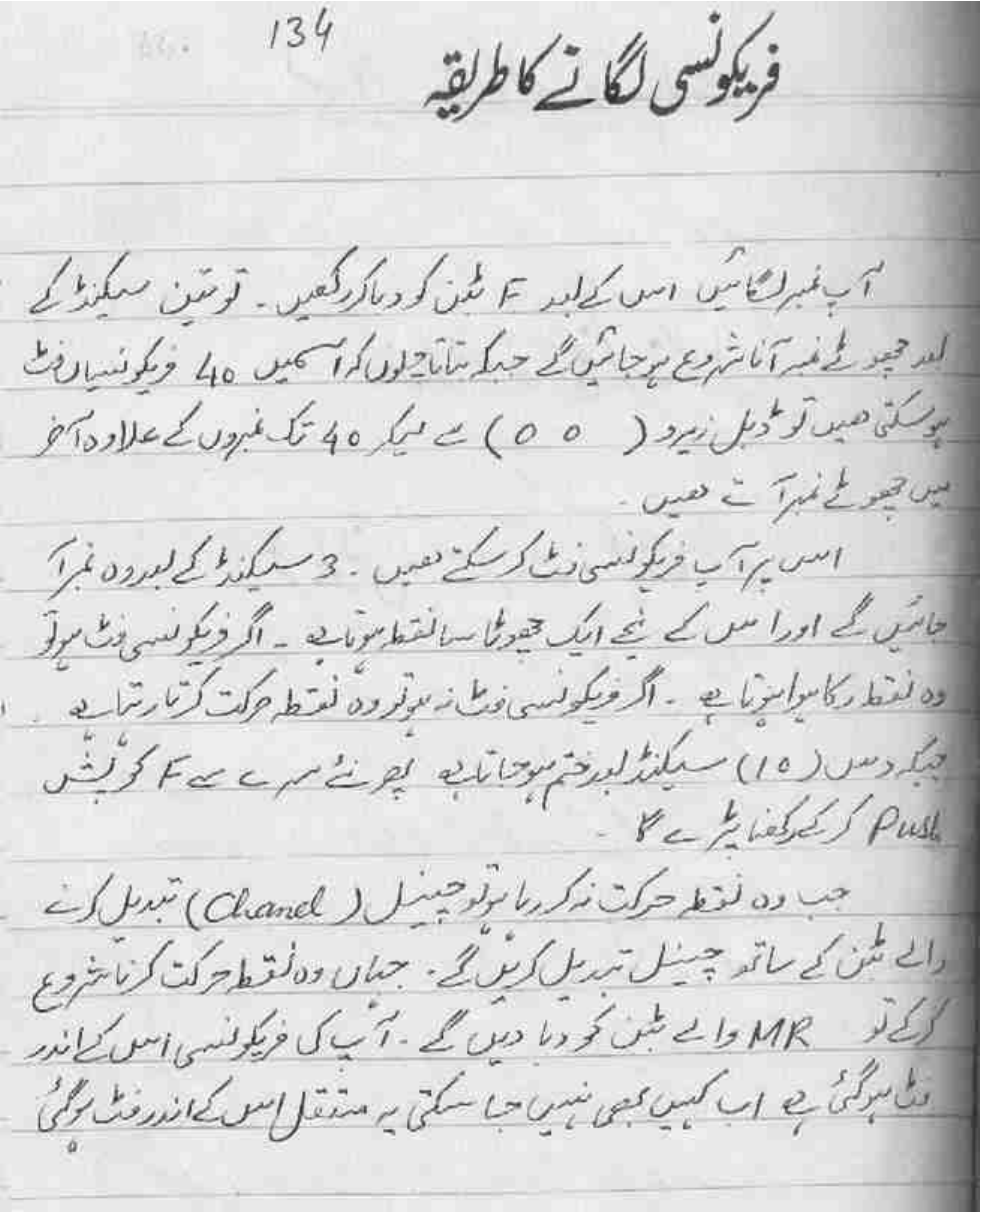 134
فریکونسی لگانے کا طریقہ
آپ نمبر لگائیں اس کے بعد F بٹن کو دبا کر رکھیں ۔ تو تین سیکنڈ کے
بعد چھوٹے نمبر آنا شروع ہو جائیں گے جبکہ بتاتا چلوں کہ اسمیں 40 فریکونسیاں فٹ
ہو سکتی ھیں تو ڈبل زیرو ( 0 0 ) سے لیکر 40 تک نمبروں کے علاوہ آخر
میں چھوٹے نمبر آتے ھیں ۔
اس پر آپ فریکونسی فٹ کر سکتے ھیں ۔ 3 سیکنڈ کے بعد وہ نمبر آ
جائیں گے اور اس کے نیچے ایک چھوٹا سا نقطہ ہوتا ہے ۔ اگر فریکونسی فٹ ہو تو
وہ نقطہ رکا ہوا ہوتا ہے ۔ اگر فریکونسی فٹ نہ ہو تو وہ نقطہ حرکت کرتا رہتا ہے ۔
جبکہ دس (10) سیکنڈ بعد ختم ہو جاتا ہے پھر نئے سرے سے F کو پش
Push کر کے رکھنا پڑے گا ۔
جب وہ نقطہ حرکت نہ کر رہا ہو تو چینل (Chanel) تبدیل کرنے
والے بٹن کے ساتھ چینل تبدیل کریں گے ۔ جہاں وہ نقطہ حرکت کرنا شروع
کرے تو MR والے بٹن کو دبا دیں گے ۔ آپ کی فریکونسی اس کے اندر
فٹ ہو گئی ہے اب کہیں بھی نہیں جا سکتی یہ مستقل اس کے اندر فٹ ہو گئی